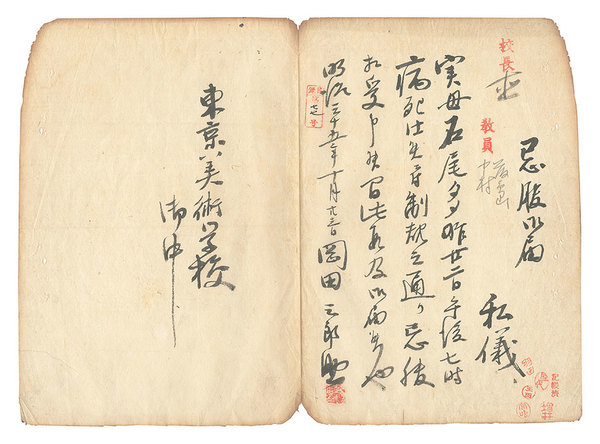 校長
教員
中村
忌服御届
私儀、
実母石尾 昨廿二日午後七時
病死仕候ニ付制規之通リ忌服
相受申候間此段及御届候也
明治三十五年十月廿三日 岡田三郎助
東京美術学校
御中